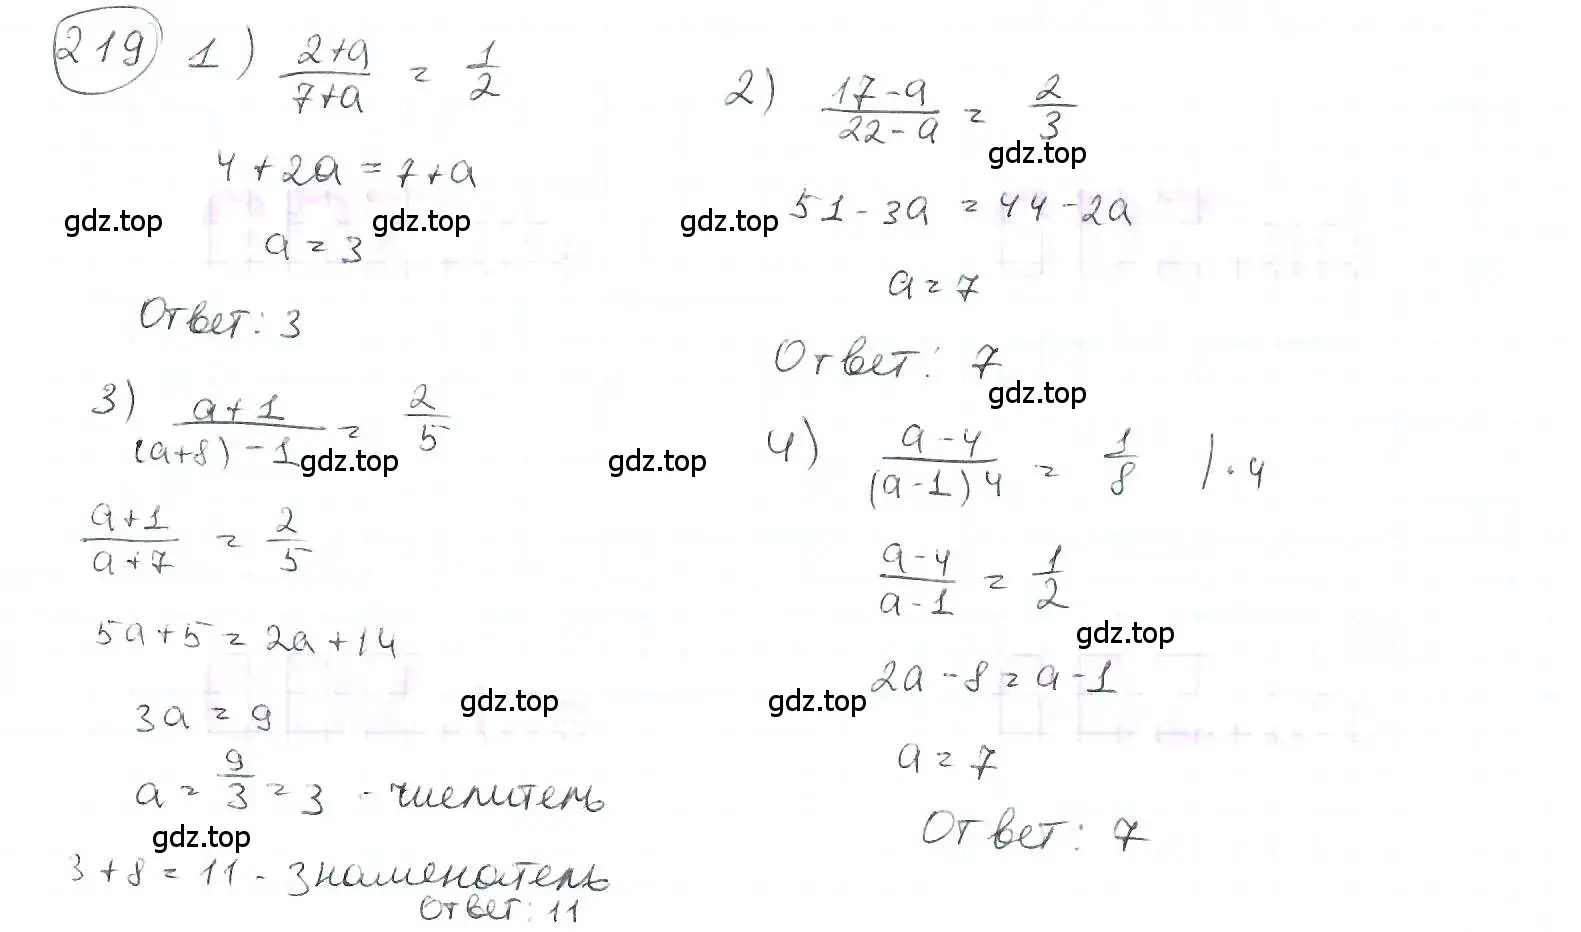 219 1) (2+a)/(7+a) = 1/2
4 + 2a = 7+a
gdz.top gdz.top
a = 3
Ответ: 3
2) (17-a)/(22-a) = 2/3
gdz.top
gdz.top 51 - 3a = 44 - 2a
a = 7
Ответ: 7
gdz.top
3) (a+1)/((a+8)-1) = 2/5
gdz.top gdz.top
(a+1)/(a+7) = 2/5
5a+5 = 2a+14
gdz.top
3a = 9
a = 9/3 = 3 - числитель
gdz.top
3+8 = 11 - знаменатель
Ответ: 11
4) (a-4)/((a-1)4) = 1/8 | · 4
(a-4)/(a-1) = 1/2
gdz.top
2a - 8 = a - 1
gdz.top
a = 7
Ответ: 7